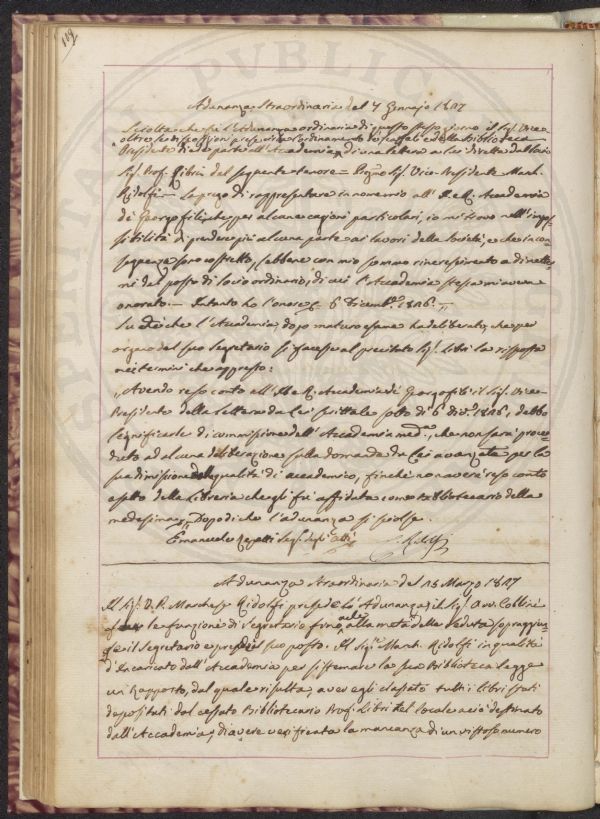 119
Adunanza Straordinaria del 7 Gennajo 1827
Sciolta che fu l'Adunanza ordinaria di questo stesso giorno il Sig. Vice-
oltre le discussioni l'ordinamento Scaffali della Biblioteca
Presidente diede parte all'Accademia di una lettera a lui diretta dal
Sig. Prof. Libri del seguente tenore = Pregmo Sig. Vice-Presidente March.
Ridolfi = La prego di rappresentare in nome mio all' I. e R. Accademia
de' Georgofili, che per alcune cagioni particolari, io mi trovo nell'impos-
sibilità di prendere più alcuna parte ai lavori della Società, e che in con-
seguenza sono costretto, sebbene con mio sommo rincrescimento a dimetter-
mi del posto di Socio ordinario, di cui l'Accademia stessa mi aveva
onorato. = Intanto ho l'onore 6 Dicembre 1826. =
Su di che l'Accademia, dopo maturo esame ha deliberato, che per
organo del suo Segretario si facesse al precitato Sig. Libri la risposta
nei termini che appresso:
"Avendo reso conto all' I. e R. Accademia de' Georgofili il Sig. Vice-
Presidente della lettera da Lei scrittale sotto dì 6 Dic. 1826, debbo
significarle di commissione dell'Accademia med.a, che non sarà proce-
duto ad alcuna deliberazione sulla domanda da Lei avanzata per la
sua dimissione dalla qualità di accademico, finchè non avere reso conto
esatto della Libreria che gli fu affidata come Bibliotecario della
medesima". Dopo di che l'adunanza si sciolse.
Emanuele Repetti Seg. degli Atti
C. Ridolfi
Adunanza Straordinaria del 15 Marzo 1827
Il Sig. V. P. Marchese Ridolfi presedè l'Adunanza; il Sig. Avv. Collini
fece le funzioni di Segretario fino alla metà della Seduta, sopraggiun-
se il Segretario e prese il suo posto. Il Sig. March. Ridolfi in qualità
d'Incaricato dell'Accademia per sistemare la sua Biblioteca legge
un Rapporto, dal quale risulta, aver egli classato tutti i libri stati
depositati dal cessato Bibliotecario Prof. Libri nel locale a ciò destinato
dall'Accademia, di avere verificata la mancanza di un vistoso numero